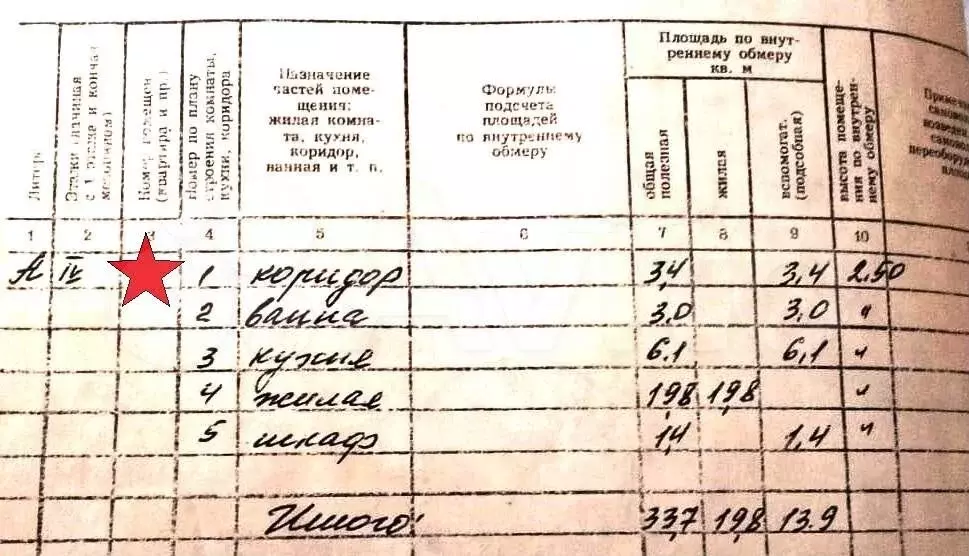 Площадь по внут-
реннему обмеру
кв. м
Литера
Этажи (начиная
с 1 этажа и кончая
мезонином)
Комн. помещен.
(квартира и пр.)
Номер по плану
строения комнаты,
кухни, коридора
Назначение
частей поме-
щения:
жилая комна-
та, кухня,
коридор,
ванная и т. п.
Формула
подсчета
площадей
по внутреннему
обмеру
общая
полезная
жилая
вспомогат.
(подсобная)
высота помеще-
ния по внутрен-
нему обмеру
1 2 3 4 5 6 7 8 9 10
А IV 1 коридор 3,4 3,4 2.50
2 ванна 3,0 3,0 "
3 кухня 6.1 6,1 "
4 жилая 19,8 19,8 "
5 шкаф 1,4 1,4 "
Итого: 33,7 19,8 13.9